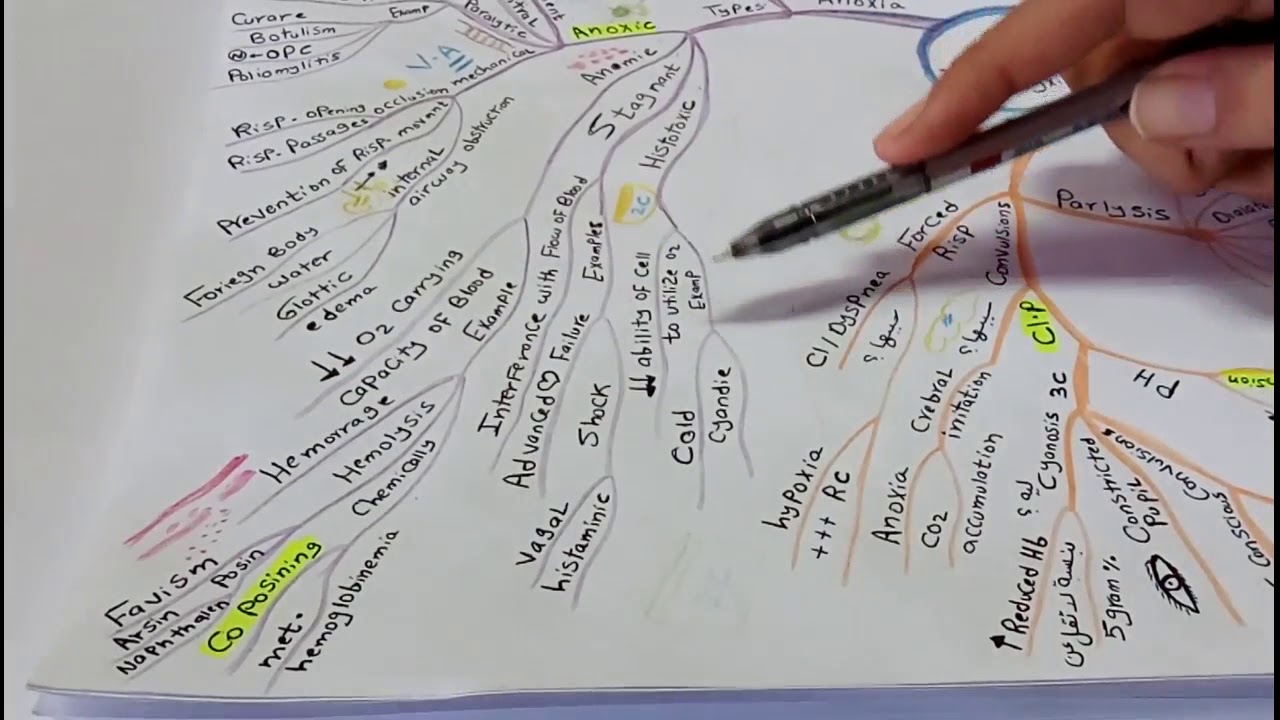 Curare
Botulism
OPC
Poliomylitis
Examp
Paralytic
Anoxic
Types
Anoxia
V.A
mechanical
Risp. opening occlusion
Risp. Passages
Prevention of Risp. movant
internal
airway obstruction
Foriegn Body
water
Glottic
edema
Anomic
Stagnant
Histotoxic
2C
↓↓ O2 Carrying
Capacity of Blood
Example
Hemorrage
Hemolysis
Chemically
Favism
Arsin Posin
Naphthalen
Co Posining
met.
hemoglobinemia
Interferance with Flow of Blood
Examples
Advanced ♡ Failure
Shock
Vagal
histaminic
↓↓ ability of Cell
to utilize O2
Examp
Cold
Cyandie
Forced
Risp
Convulsions
Parlysis
Cl/Dyspnea
سببها؟
سببها؟
hypoxia
+++ RC
Crebral
irritation
Anoxia
CO2
accumulation
Cl.P
PH
Cyanosis 3C
له؟
↑Reduced Hb
5gram%
Constricted
Pupil
Convulsions